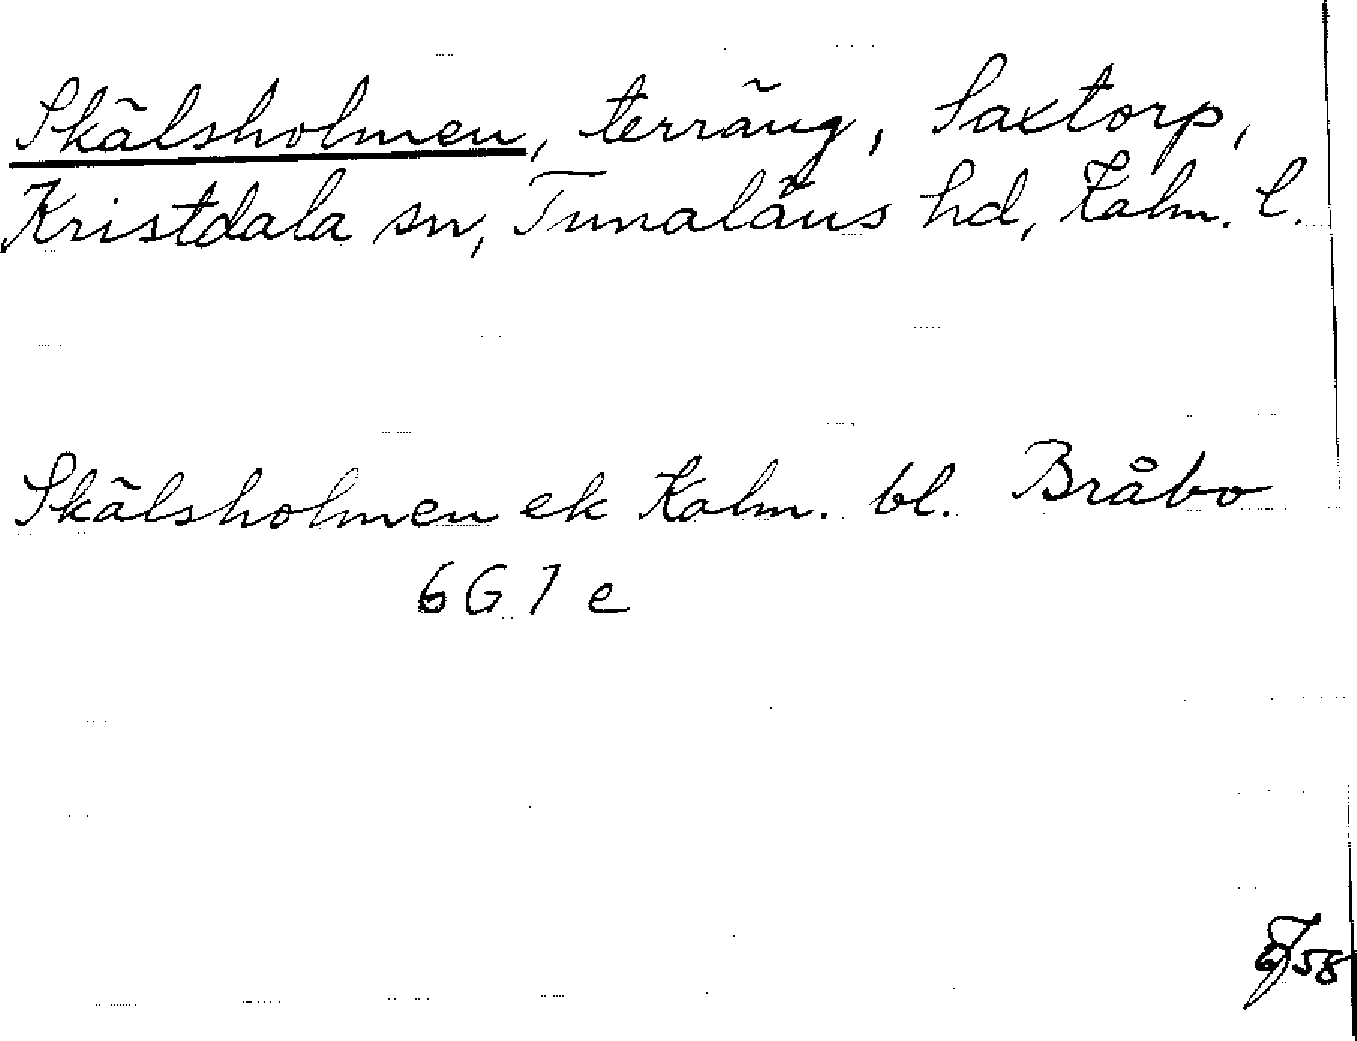 Skälsholmen, terräng, Saxtorp,
Kristdala sn, Tunaläns hd, Kalm. l.
Skälsholmen ek Kalm. bl. Bråbo
6G 7 e
/58